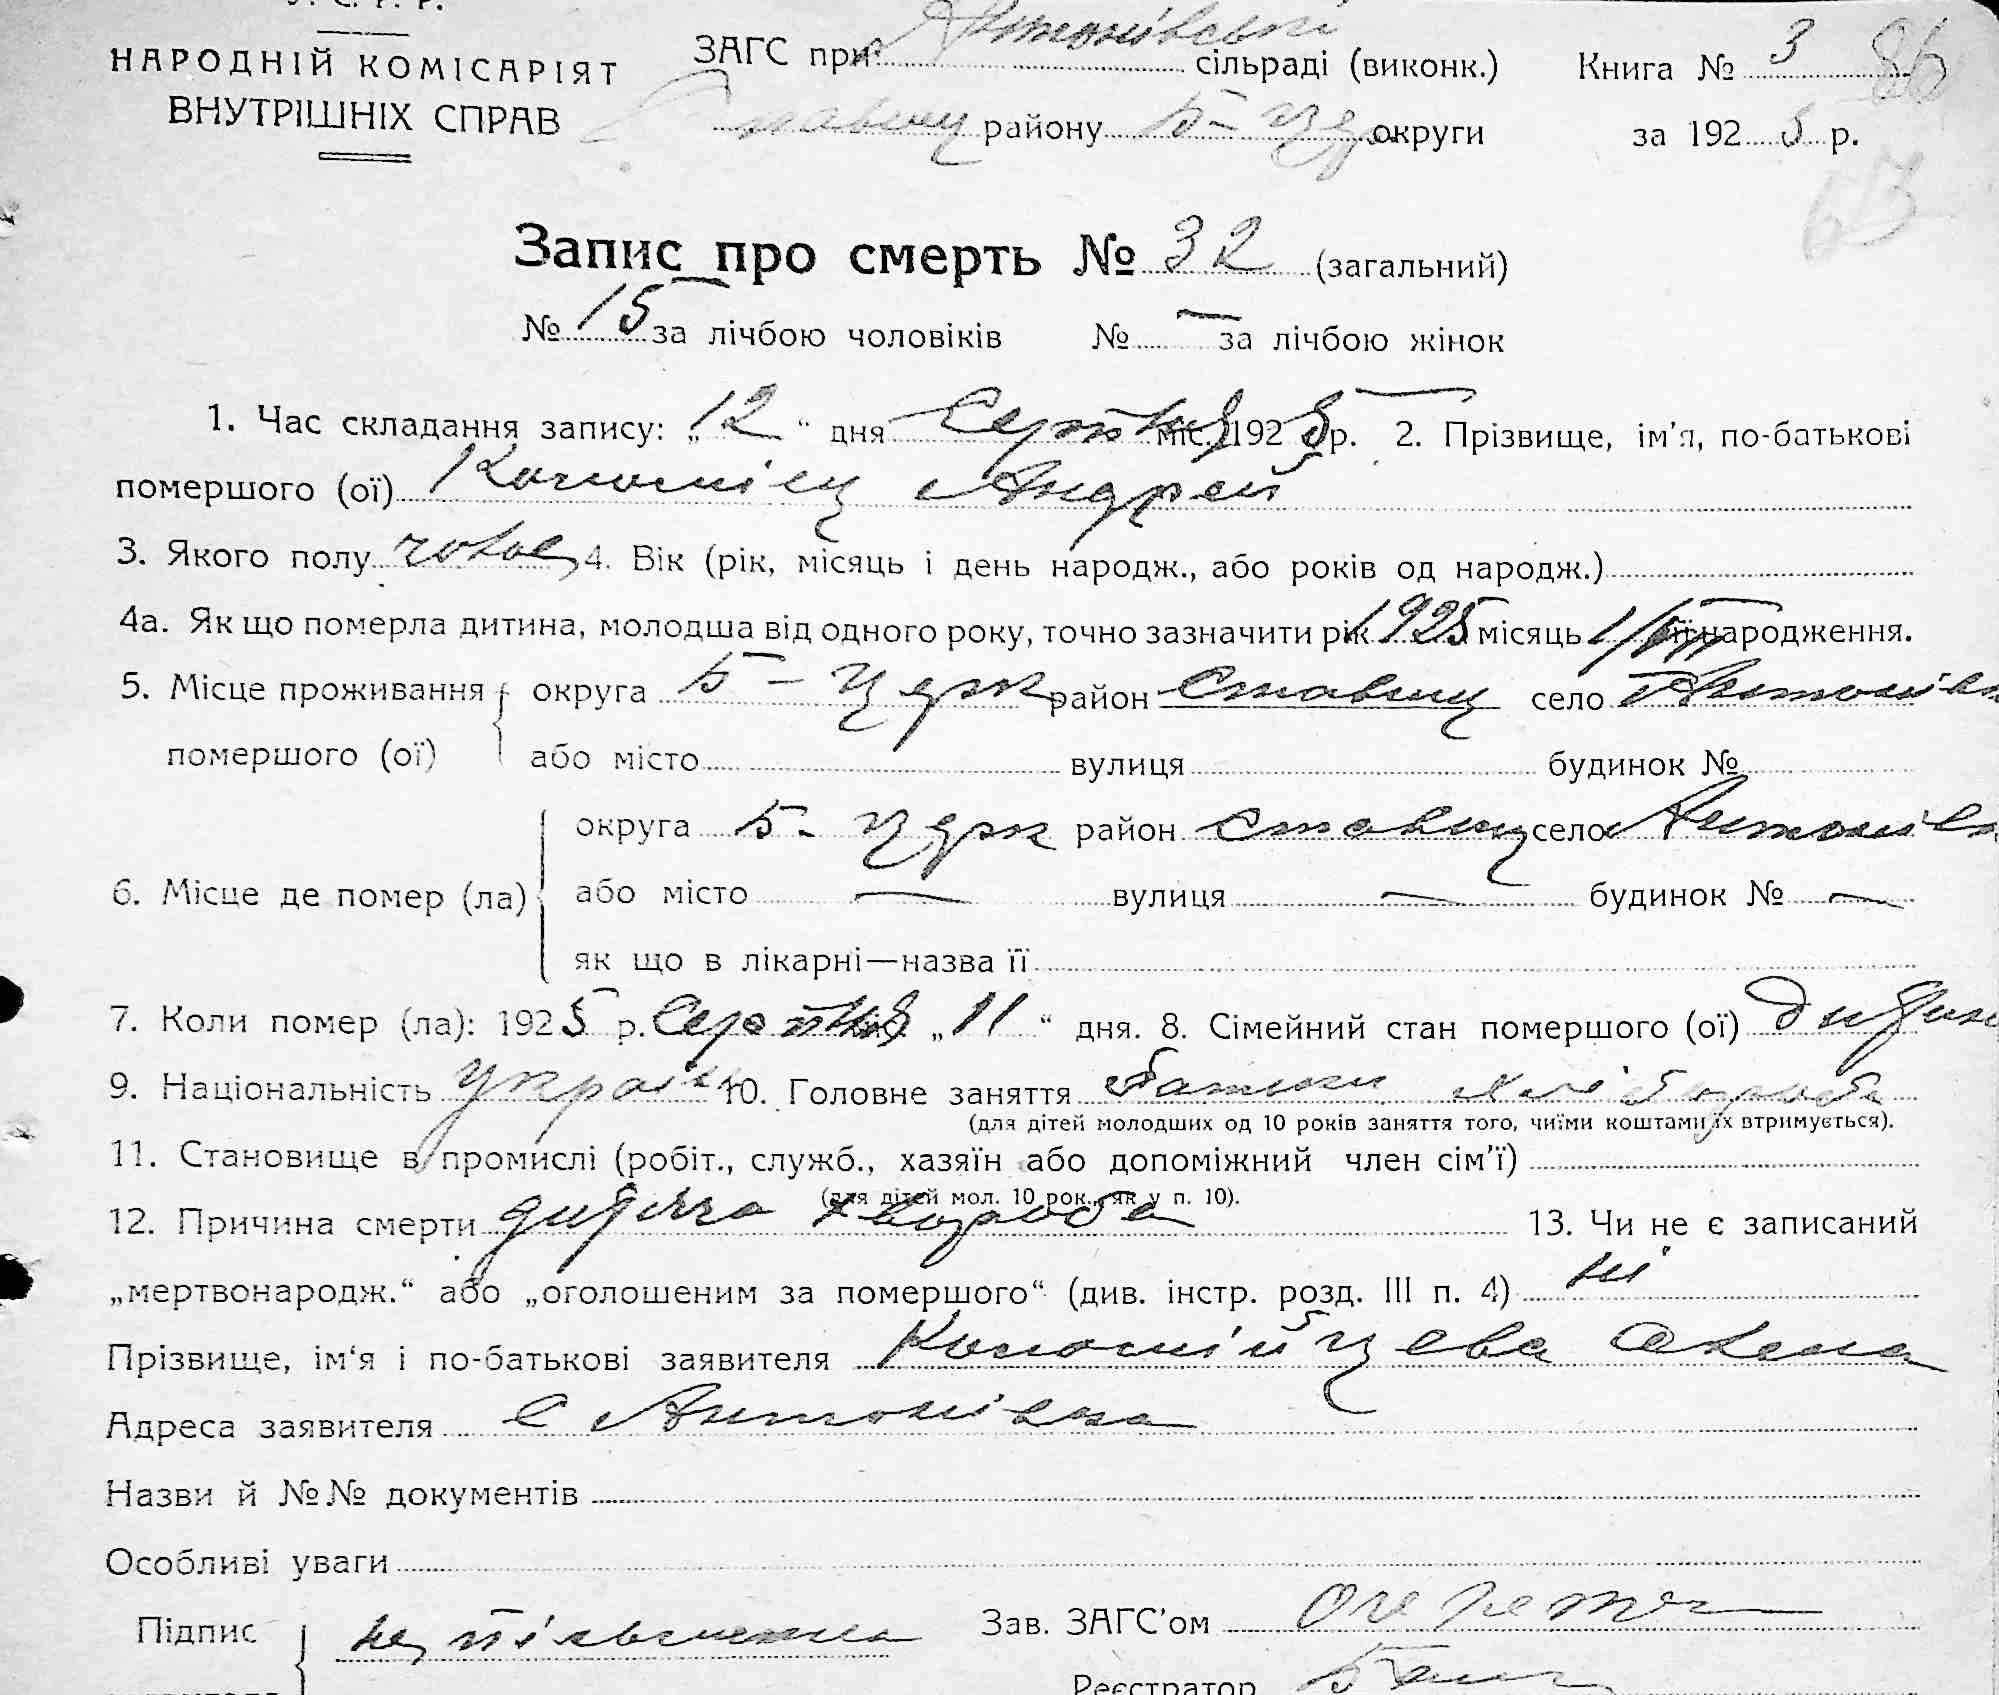 У. С. Р. Р.
НАРОДНІЙ КОМІСАРІЯТ
ВНУТРІШНІХ СПРАВ
ЗАГС при Антонівській сільраді (виконк.) Книга № 3 86
Ставищ району Б-Црк округи за 1925 р.
Запис про смерть № 32 (загальний)
№ 15 за лічбою чоловіків № — за лічбою жінок
1. Час складання запису: „12“ дня Серпня міс. 1925 р. 2. Прізвище, ім'я, по-батькові
помершого (ої) Коломієць Андрей
3. Якого полу чолов 4. Вік (рік, місяць і день народж., або років од народж.)
4а. Як що померла дитина, молодша від одного року, точно зазначити рік 1925 місяць 1/VIII її народження.
5. Місце проживання помершого (ої) округа Б-Церк район Ставищ село Антонівк
або місто вулиця будинок №
6. Місце де помер (ла) округа Б-Церк район Ставищ село Антонівк
або місто — вулиця — будинок № —
як що в лікарні—назва її
7. Коли помер (ла): 1925 р. Серпня міс. „11“ дня. 8. Сімейний стан помершого (ої) дитина
9. Національність україн 10. Головне заняття Батьки хлібороби
(для дітей молодших од 10 років заняття того, чиїми коштами їх втримується).
11. Становище в промислі (робіт., служб., хазяїн або допоміжний член сім'ї)
(для дітей мол. 10 рок., як у п. 10).
12. Причина смерти дитяча хвороба 13. Чи не є записаний
„мертвонародж.“ або „оголошеним за помершого“ (див. інстр. розд. III п. 4) ні
Прізвище, ім'я і по-батькові заявителя Коломійцева Олена
Адреса заявителя с Антонівка
Назви й №№ документів
Особливі уваги
Підпис неписьменна Зав. ЗАГС'ом
заявителя Реєстратор